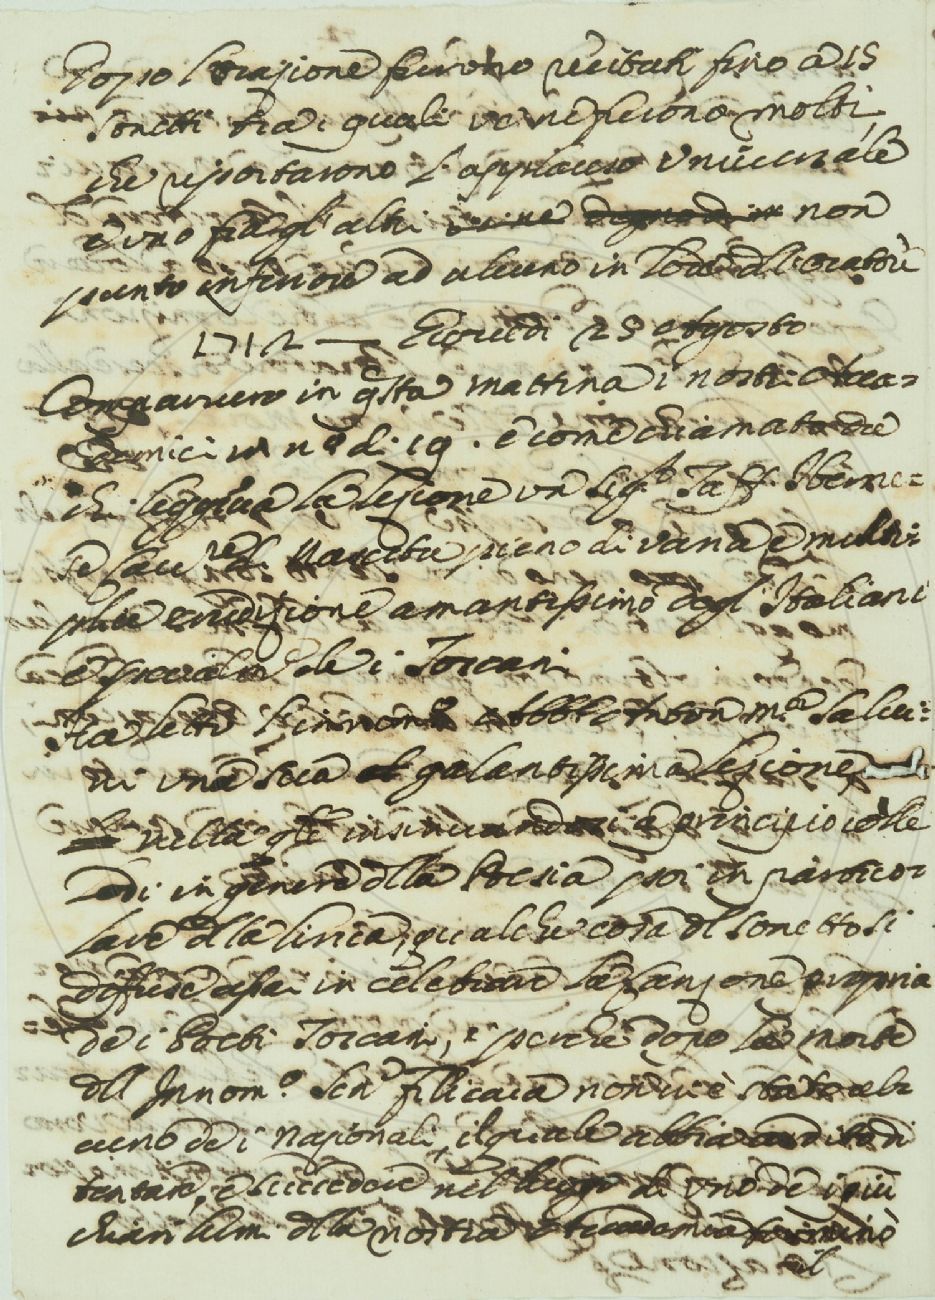 Dopo l'orazione furono recitati fino a 15
sonetti tra i quali ve ne furono molti
che riportarono l'applauso universale
e uno fra gl'altri non
punto inferiore ad alcuno in lode dell'oratore
1712 — Giovedì 25 Agosto
Comparvero in qsta mattina i nostri Acca=
demici in n.º di 19. e come chiamato
chi leggeva la lezione un Sig.r
di pieno di varia e molti=
plice erudizione amantissimo degl'Italiani
e de i Toscani
Ha letto l'innom.º Abb.e Anton M.a Salvi=
ni una sua galantissima lezione
nella qle insinuandosi a principio colle
lodi in genere dlla Poesia poi in partico=
lare dlla lirica, qualche cosa dl sonetto si
diffuse assai in celebrare la canzone propria
de i Poeti Toscani, e perche dopo la morte
dll Innom.º Sen.r Filicaia non vi è stato al=
cuno de i nazionali, il quale abbia ardito di
tentare, e succedere nel luogo di uno de i più
chiari lumi dlla nostra Accademia terminò
il